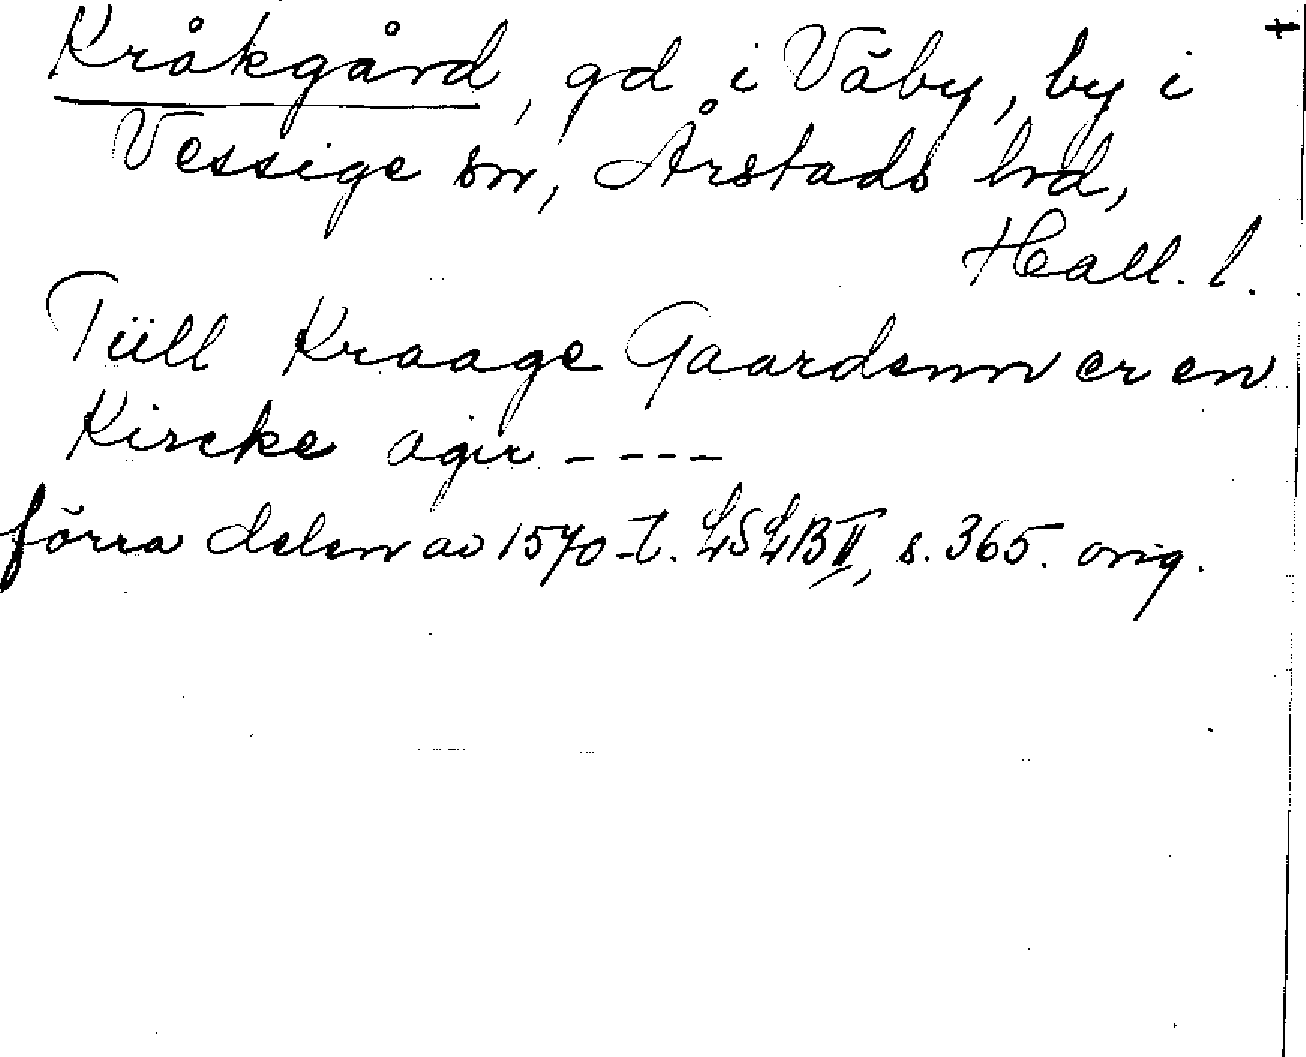 Kråkgård, gd i Väby, by i
Vessige sn, Årstads hrd,
Hall. l.
Tiill Kraage Gaardenn er en
Kircke ager ----
förra delen av 1570-t. LSLB II, s. 365. orig.